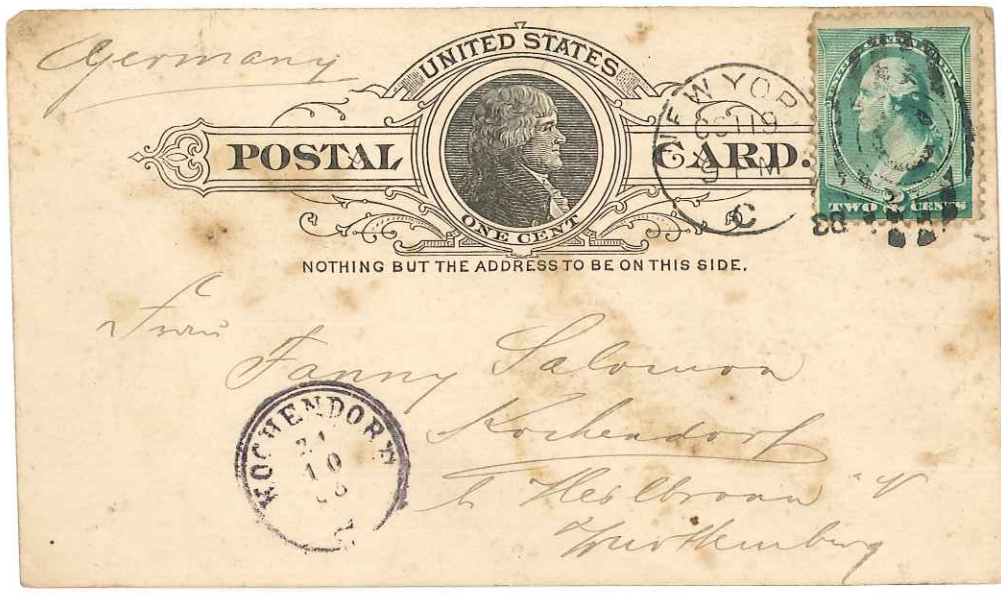 Germany
UNITED STATES
POSTAL CARD.
ONE CENT
NOTHING BUT THE ADDRESS TO BE ON THIS SIDE.
NEW YOR
OCT 19
9 PM
C
88
TWO CENTS
Frau
Fanny Salomon
Kochendorf
b Heilbronn a/
Wurttemburg
KOCHENDORF
10